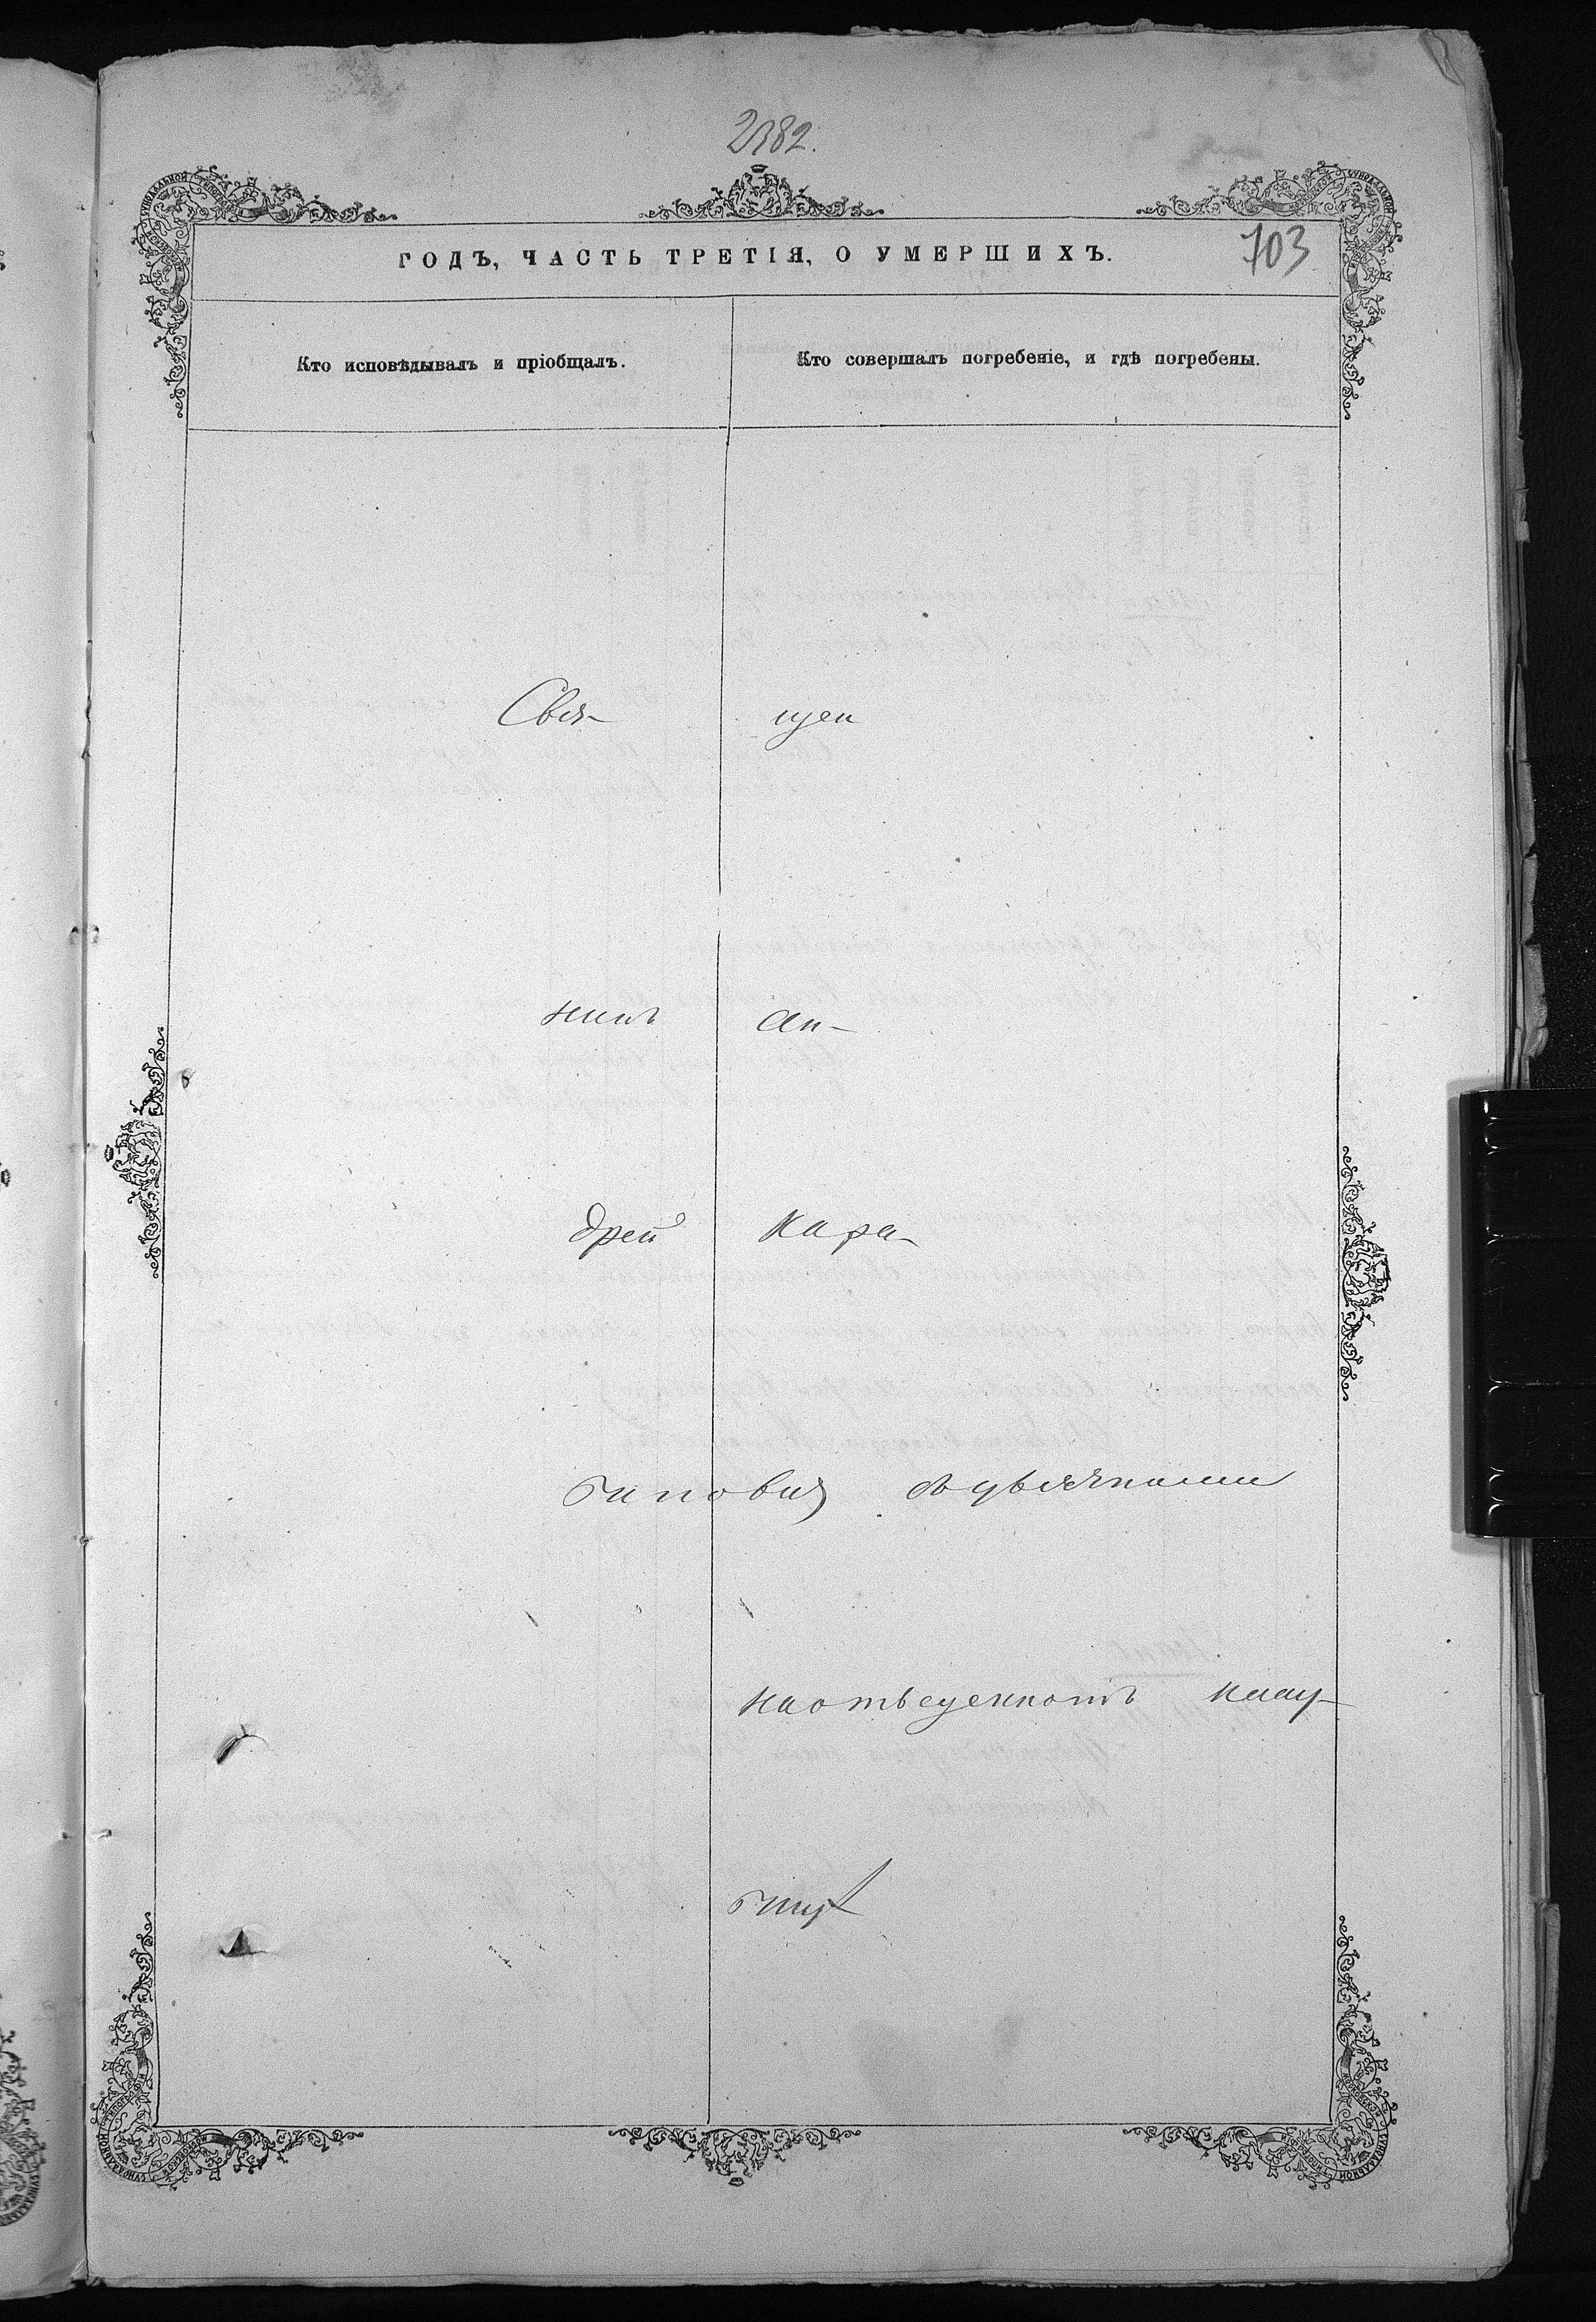 2182.
703
ГОДЪ, ЧАСТЬ ТРЕТІЯ, О УМЕРШИХЪ.
Кто исповѣдывалъ и пріобщалъ.
Кто совершалъ погребеніе, и гдѣ погребены.
Свя- щен
никъ Ан-
дрей Кара-
на отведенномъ клад-
бищѣ